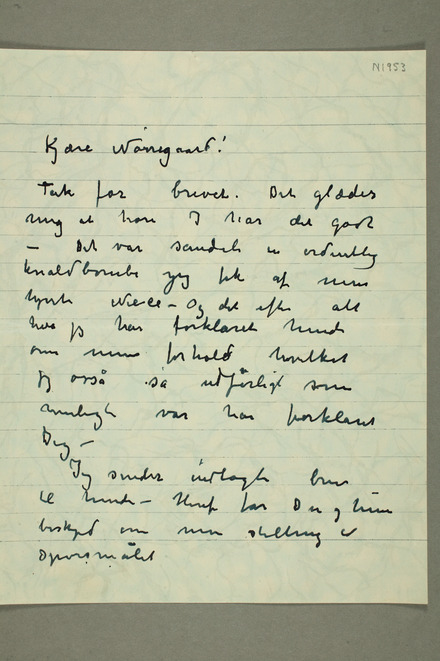 N1953
Kjære Nörregaard!
Tak for brevet. Det glæder
mig at höre I har det godt
– Det var sandelig en ordentlig
knaldbombe jeg fik af min
kjære Niece – Og det efter alt
hva jeg har forklaret hende
om mine forhold hvilket
jeg også så udförligt som
muligt var har forklaret
Dig –
Jeg sender indlagte brev
til hende – Heraf får Du og hun
beskjed om min stilling til
spörsmålet